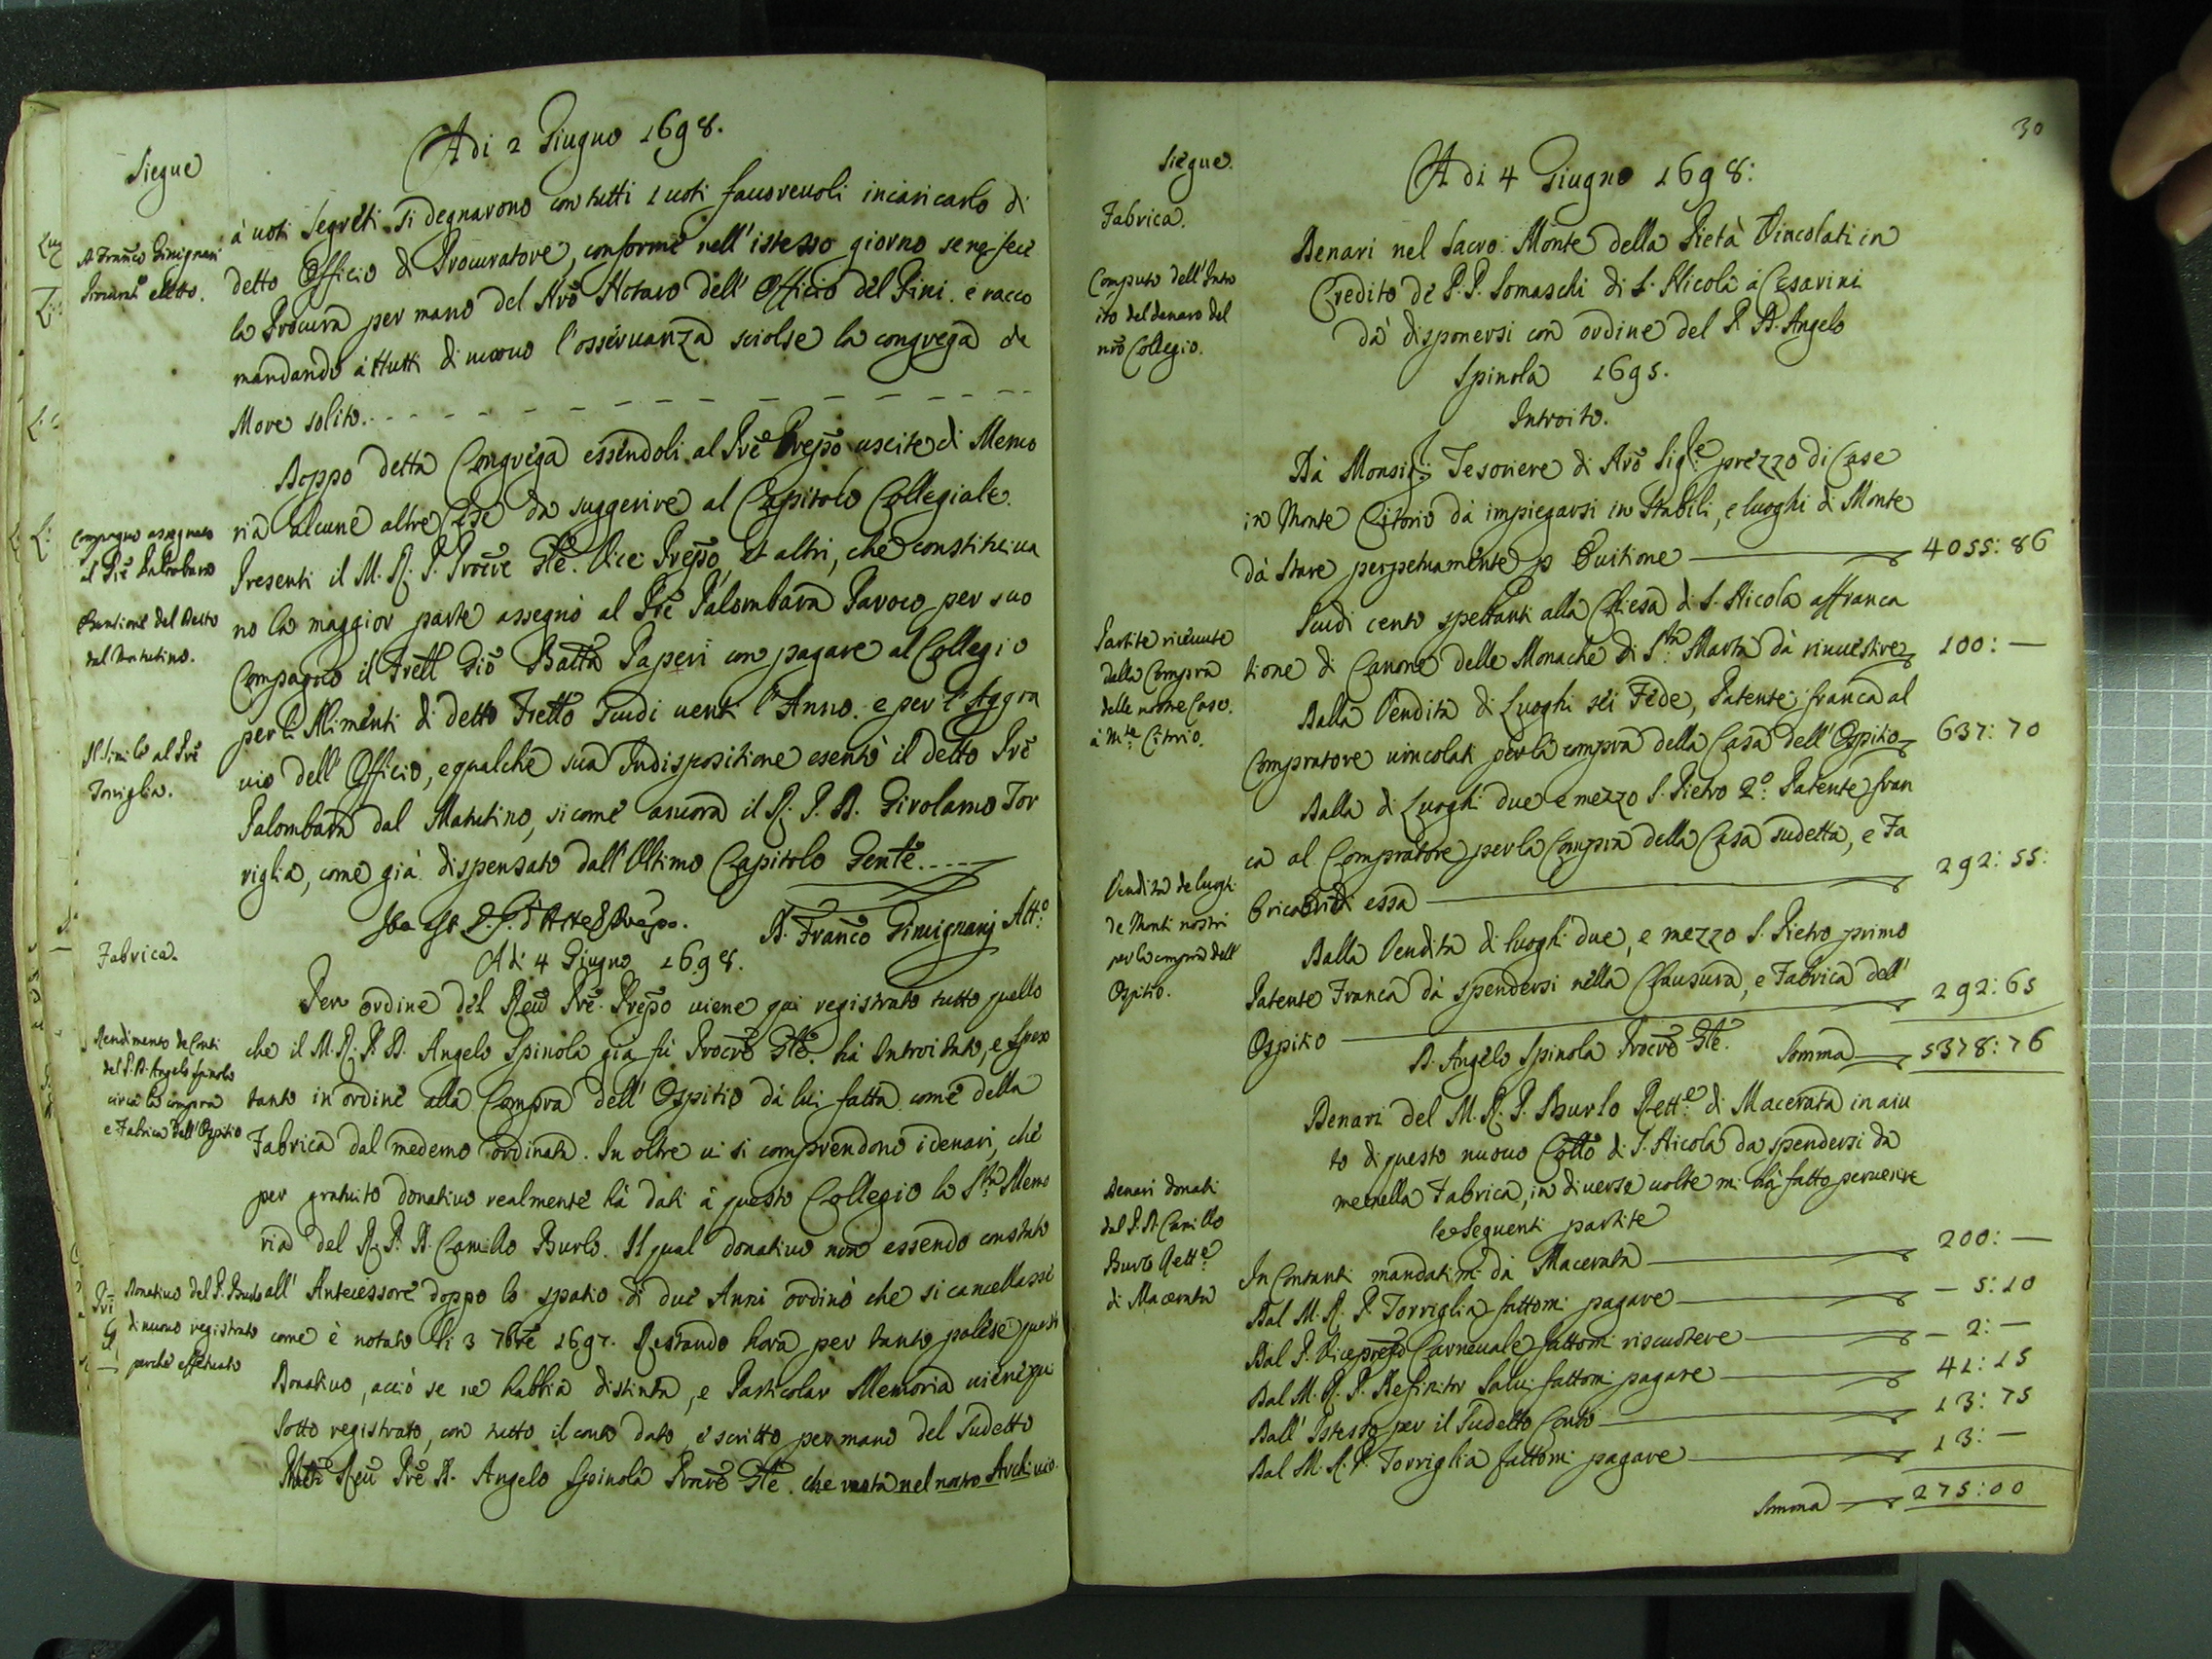 Siegue
Adi 2 Giugno 1698.
à uoti segreti si degnarono con tutti i uoti fauoreuoli incaricarlo di
detto Officio di Procuratore, conforme nell'istesso giorno se ne fece
la Procura per mano del Nrō Notaro dell'Officio del Pini. e racco
mandando à ttutti di nuouo l'osseruanza sciolse la congrega de
More solito.
A Franco Gimignani
Procurat. eletto.
Doppo detta Congrega essendoli al Pre Prepo uscite di Memo
ria alcune altre Cose da suggerire al Capitolo Collegiale.
Presenti il M. R. P. Procre Gle. Vice Prepo, et altri, che constituiua
no la maggior parte assegnò al Pre Palombara Paroco per suo
Compagno il Frett Gio Batta Paperi con pagare al Collegio
per li Alimenti di detto Fretto Scudi uenti l'Anno. e per l'Aggra
uio dell'Officio, e qualche sua Indispositione esentò il detto Pre
Palombara dal Matutino, si come ancora il R. P. D. Girolamo Tor
riglia, come già dispensato dall'Ultimo Capitolo Genle.
Compagno assegnato
al Pre Palombara
Esentione del Detto
dal Matutino.
Il simile al Pre
Torriglia.
D. Franco Gimignanj Atto
Adi 4 Giugno 1698.
Fabrica.
Per ordine del Reu Pre Prepo uiene qui registrato tutto quello
che il M. R. P. D. Angelo Spinola già fù Procre Gle. hà Introitato, e Speso
tanto in ordine alla Compra dell'Ospitio dà lui fatta come della
Fabrica dal medemo ordinata. In oltre ui si comprendono i denari, che
per gratuito donatiuo realmente hà dati à questo Collegio la Sta Memo
ria del R. P. D. Camillo Burlo. Il qual donatiuo non essendo constato
all'Antecessore doppo lo spatio di due Anni ordinò che si cancellasse
come è notato li 3 7bre 1697. Restando hora per tanto palese questo
Donatiuo, acciò se ne habbia distinta, e Particolar Memoria uiene qui
sotto registrato, con tutto il conto dato, e scritto per mano del Sudetto
Molto Reu Pre D. Angelo Spinola Procre Gle. che resta nel nostro Archiuio.
Rendimento de Conti
del P. D. Angelo Spinola
circa la compra
e Fabrica dell'Ospitio
Donatiuo del P. Burlo
di nuouo registrato
perche effettuato
30
Siegue.
Adi 4 Giugno 1698:
Fabrica.
Computo dell'Intro
ito del denaro del
nro Collegio.
Denari nel Sacro Monte della Pietà Vincolati in
Credito de P. P. Somaschi di S. Nicola à Cesarini
dà disponersi con ordine del P. D. Angelo
Spinola 1695.
Introito.
Dà Monsig. Tesoriere di Nro Sige prezzo di Case
in Monte Citorio dà impiegarsi in Stabili, e luoghi di Monte
dà stare perpetuamente p Euitione 4055:86
Scudi cento spettanti alla Chiesa di S. Nicola affranca
tione di Canone delle Monache di Sta Marta dà rinuestire 100:—
Dalla Vendita di Luoghi sei Fede, Patente franca al
Compratore uincolati per la compra della Casa dell'Ospitio 637:70
Dalla di Luoghi due e mezzo S. Pietro 2o. Patente fran
ca al Compratore per la Compra della Casa sudetta, e Fa
brica di essa 292:55:
Dalla Vendita di luoghi due, e mezzo S. Pietro primo
Patente Franca dà spendersi nella Clausura, e Fabrica dell'
Ospitio 292:65
D. Angelo Spinola Procre Gle. Somma 5378:76
Partite riceuute
della Compra
delle nostre Case
à Mte Citorio.
Vendita de luoghi
de Monti nostri
per la compra dell'
Ospitio.
Denari del M. R. P. Burlo Rette di Macerata in aiu
to di questo nuouo Collo di S. Nicola da spendersi da
me nella Fabrica, in diuerse uolte mi hà fatto peruenire
le Seguenti partite
In Contanti mandatimi dà Macerata 200:—
Dal M. R. P. Torriglia fattomi pagare — 5:10
Dal P. Viceprepo Carneuale fattomi riscuotere — 2:—
Dal M. R. P. Definitor Salui fattomi pagare 41:15
Dall'Istesso per il Sudetto Conto 13:75
Dal M. R. P. Torriglia fattomi pagare 13:—
Somma 275:00
Denari donati
dal P. D. Camillo
Burlo Rette
di Macerata